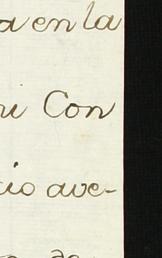 a en la
Con
cio ave-